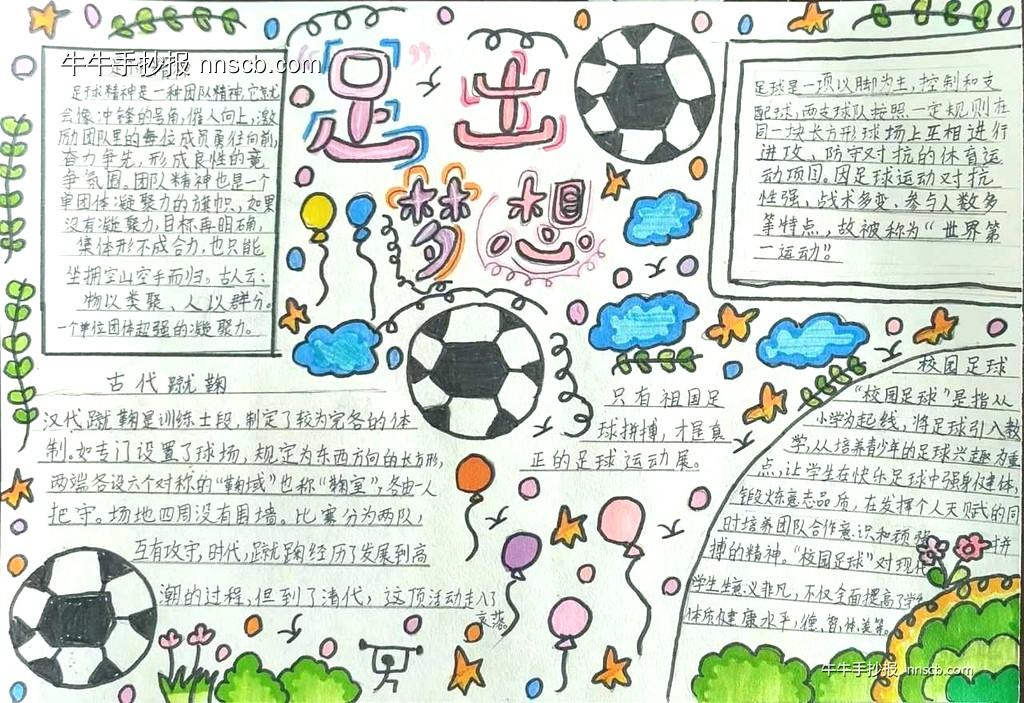 牛牛手抄报 nnscb.com
足球精神是一种团队精神,它就
会像冲锋的号角,催人向上,激
励团队里的每位成员勇往向前,
奋力争先,形成良性的竞
争氛围。团队精神也是一个
单团体凝聚力的旗帜,如果
没有凝聚力,目标再明确,
集体形不成合力,也只能
坐拥空山空手而归。古人云:
物以类聚、人以群分。
一个单位团体超强的凝聚力。
"足"出
梦想
足球是一项以脚为主,控制和支
配球,两支球队按照一定规则在
同一块长方形球场上互相进行
进攻、防守对抗的体育运
动项目。因足球运动对抗
性强、战术多变、参与人数多
等特点,故被称为"世界第
一运动"。
古代蹴鞠
汉代蹴鞠是训练士段,制定了较为完备的体
制。如专门设置了球场,规定为东西方向的长方形,
两端各设六个对称的"鞠域"也称"鞠室",各由一人
把守。场地四周没有围墙。比赛分为两队,
互有攻守,时代,蹴鞠经历了发展到高
潮的过程,但到了清代,这项活动走入了
衰落。
只有祖国足
球拼搏,才是真
正的足球运动展。
校园足球
"校园足球"是指从
小学为起线,将足球引入教
学,从培养青少年的足球兴趣为重
点,让学生在快乐足球中强身健体,
锻炼意志品质,在发挥个人天赋的同
时培养团队合作意识和顽强拼
搏的精神。"校园足球"对现代
学生生意义非凡,不仅全面提高了学生
体质健康水平,德、智、体、美等。
牛牛手抄报 nnscb.com